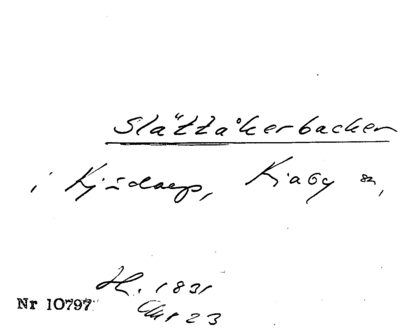 Slättåkerbacken
i Kjúdaep, Kiaby sn,
H. 1831
Akt 23
Nr 10797